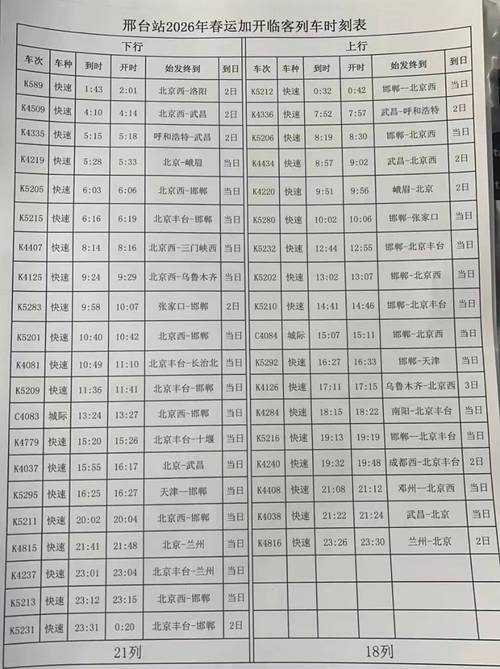 邢台站2026年春运加开临客列车时刻表
下行 上行
车次 车种 到时 开时 始发终到 到日 车次 车种 到时 开时 始发终到 到日
K589 快速 1:43 2:01 北京西-洛阳 2日 K5212 快速 0:32 0:42 邯郸—北京西 当日
K4509 快速 4:10 4:14 北京西-武昌 2日 K4336 快速 7:52 7:57 武昌-呼和浩特 2日
K4335 快速 5:15 5:18 呼和浩特-武昌 2日 K5206 快速 8:19 8:30 邯郸-北京西 当日
K4219 快速 5:28 5:33 北京-峨眉 当日 K4434 快速 8:57 9:02 武昌-北京西 2日
K5205 快速 6:03 6:06 北京西-邯郸 当日 K4220 快速 9:51 9:56 峨眉-北京 2日
K5215 快速 6:16 6:19 北京丰台-邯郸 当日 K5280 快速 10:02 10:06 邯郸-张家口 当日
K4407 快速 8:14 8:16 北京西-三门峡西 当日 K5232 快速 12:44 12:55 邯郸-北京丰台 当日
K4125 快速 9:24 9:29 北京西-乌鲁木齐 当日 K5202 快速 13:02 13:07 邯郸-北京西 当日
K5283 快速 9:58 10:07 张家口-邯郸 2日 K5210 快速 14:41 14:46 邯郸-北京丰台 当日
K5201 快速 10:40 10:42 北京西-邯郸 当日 C4084 城际 15:07 15:11 邯郸-北京西 当日
K4081 快速 10:49 11:10 北京丰台-长治北 当日 K5292 快速 16:27 16:33 邯郸-天津 当日
K5209 快速 11:36 11:41 北京丰台-邯郸 当日 K4126 快速 17:11 17:15 乌鲁木齐-北京西 3日
C4083 城际 13:24 13:27 北京西-邯郸 当日 K4284 快速 18:15 18:22 南阳-北京丰台 当日
K4779 快速 15:20 15:26 北京丰台-十堰 当日 K5216 快速 19:13 19:19 邯郸—北京丰台 当日
K4037 快速 15:55 16:17 北京-武昌 当日 K4240 快速 19:32 19:48 成都西-北京丰台 2日
K5295 快速 16:25 16:27 天津—邯郸 当日 K4408 快速 21:08 21:12 邓州—北京西 当日
K5211 快速 20:02 20:04 北京西-邯郸 当日 K4038 快速 21:22 21:24 武昌-北京 当日
K4815 快速 21:41 21:48 北京-兰州 当日 K4816 快速 23:26 23:30 兰州-北京 2日
K4237 快速 23:01 23:04 北京丰台-兰州 当日
K5213 快速 23:12 23:15 北京西-邯郸 当日
K5231 快速 23:31 0:20 北京丰台-邯郸 2日
21列 18列